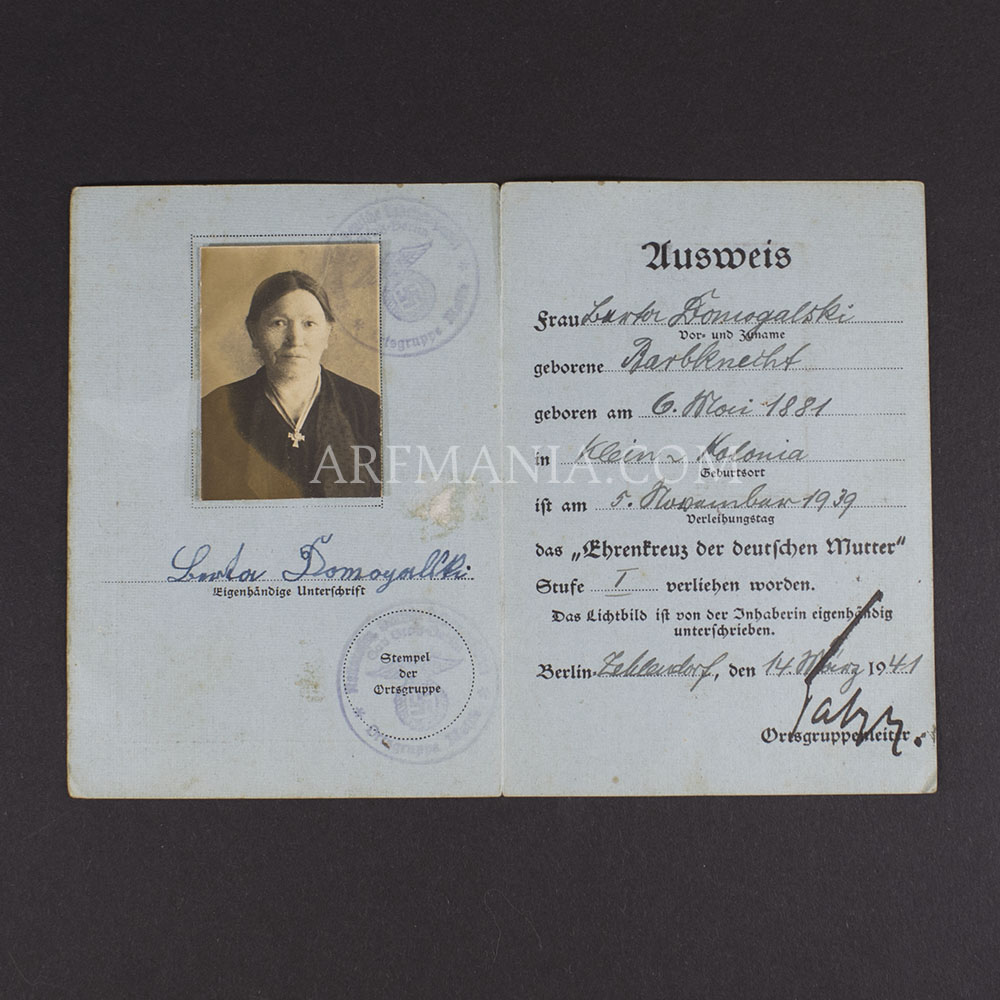 Berta Domogalski
Eigenhändige Unterschrift
Stempel
der
Ortsgruppe
Ortsgruppe
Ausweis
Frau Berta Domogalski
Vor- und Zuname
geborene Barbknecht
geboren am 6. Mai 1881
in Klein - Kolonia
Geburtsort
ist am 5. November 1939
Verleihungstag
das „Ehrenkreuz der deutschen Mutter"
Stufe I verliehen worden.
Das Lichtbild ist von der Inhaberin eigenhändig
unterschrieben.
Berlin-Zehlendorf, den 14 März 1941
Ortsgruppenleiter
ARFMANIA.COM